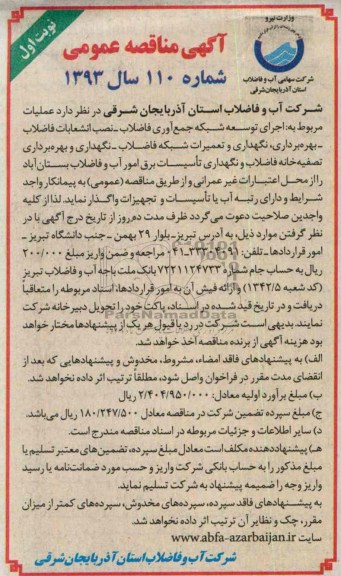 وزارت نیرو
شرکت سهامی آب و فاضلاب
استان آذربایجان شرقی
نوبت اول
آگهی مناقصه عمومی
شماره ۱۱۰ سال ۱۳۹۳
شرکت آب و فاضلاب استان آذربایجان شرقی در نظر دارد عملیات
مربوط به: اجرای توسعه شبکه جمع‌آوری فاضلاب ـ نصب انشعابات فاضلاب
ـ بهره‌برداری، نگهداری و تعمیرات شبکه فاضلاب ـ نگهداری و بهره‌برداری
تصفیه‌خانه فاضلاب و نگهداری تأسیسات برق امور آب و فاضلاب بستان‌آباد
را از محل اعتبارات غیر عمرانی و از طریق مناقصه (عمومی) به پیمانکار واجد
شرایط و دارای رتبه آب یا تأسیسات و تجهیزات واگذار نماید. لذا از کلیه
واجدین صلاحیت دعوت می‌گردد ظرف مدت ده روز از تاریخ درج آگهی با در
نظر گرفتن موارد ذیل، به آدرس تبریز ـ بلوار ۲۹ بهمن ـ جنب دانشگاه تبریز ـ
امور قراردادها ـ تلفن: مراجعه و ضمن واریز مبلغ ۲۰۰/۰۰۰
ریال به حساب جام شماره ۷۲۱۱۱۲۴۷۳۳ بانک ملت باجه آب و فاضلاب تبریز
(کد شعبه ۱۳۴۲/۵) و ارائه فیش آن به امور قراردادها، اسناد مربوطه را متعاقباً
دریافت و در تاریخ قید شده در اسناد، پاکت خود را تحویل دبیرخانه شرکت
نمایند. بدیهی است شرکت در رد یا قبول هر یک از پیشنهادها مختار خواهد
بود هزینه آگهی از برنده مناقصه اخذ خواهد شد.
الف) به پیشنهادهای فاقد امضاء، مشروط، مخدوش و پیشنهادهایی که بعد از
انقضای مدت مقرر در فراخوان واصل شود، مطلقا ترتیب اثر داده نخواهد شد.
ب) مبلغ برآورد اولیه معادل: ۲/۴۰۴/۹۵۰/۰۰۰ ریال
ج) مبلغ سپرده تضمین شرکت در مناقصه معادل ۱۸۰/۲۴۷/۵۰۰ ریال می‌باشد.
د) سایر اطلاعات و جزئیات مربوطه در اسناد مناقصه مندرج است.
هـ) پیشنهاددهنده مکلف است معادل مبلغ سپرده، تضمین‌های معتبر تسلیم یا
مبلغ مذکور را به حساب بانکی شرکت واریز و حسب مورد ضمانت‌نامه یا رسید
واریز وجه را ضمیمه پیشنهاد به شرکت تسلیم نماید.
به پیشنهادهای فاقد سپرده، سپرده‌های مخدوش، سپرده‌های کمتر از میزان
مقرر، چک و نظایر آن ترتیب اثر داده نخواهد شد.
سایت www.abfa-azarbaijan.ir
شرکت آب و فاضلاب استان آذربایجان شرقی